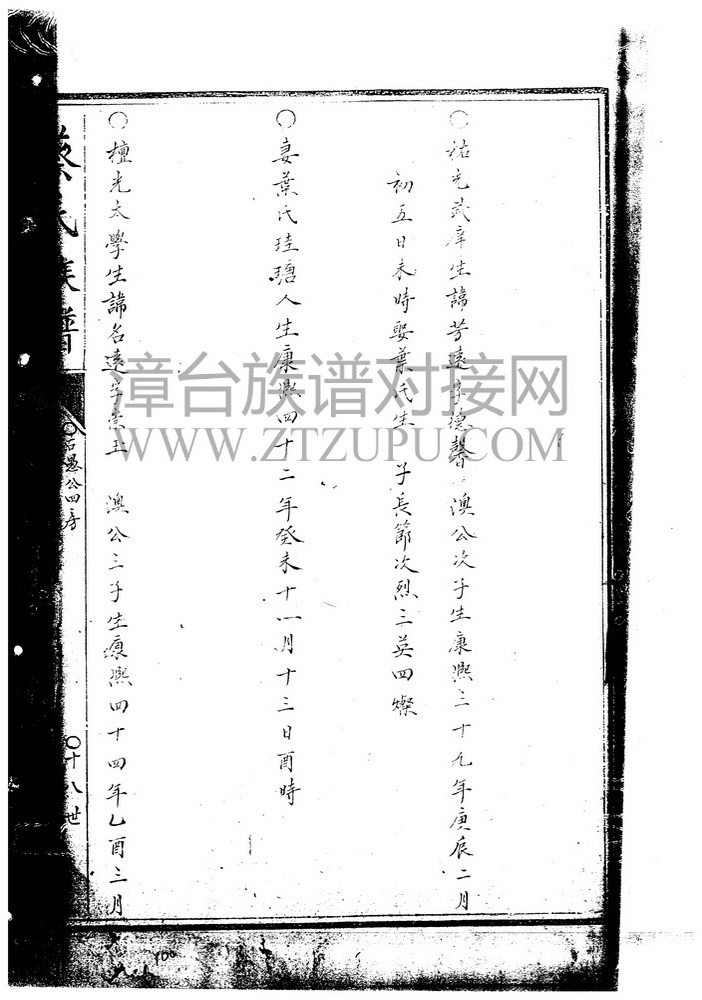 ○祐光武庠生諱芳遠字德馨 澳公次子生康熙三十九年庚辰二月
初五日未時娶葉氏生 子長節次烈三英四燦
○妻葉氏珪瑭人生康熙四十二年癸未十一月十三日酉時
○檀光太學生諱名遠字 玉 澳公三子生康熙四十四年乙酉三月
蔡氏族譜
○石愚公四房
○十八世
漳台族谱对接网
WWW.ZTZUPU.COM